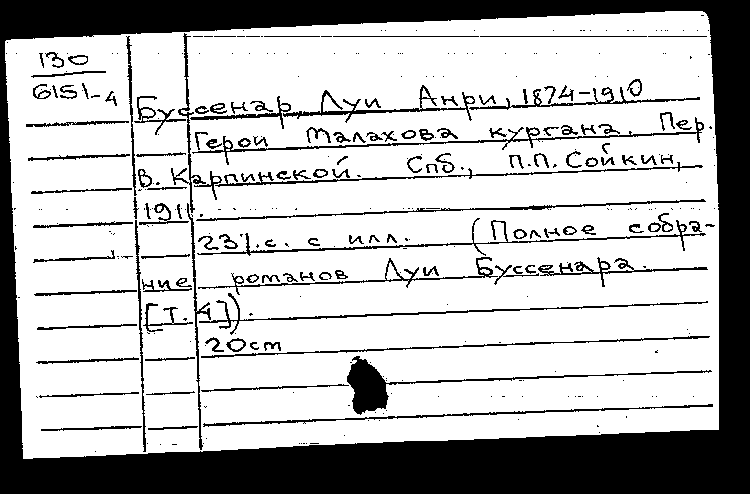 130
6151-4
Буссенар, Луи Анри, 1874-1910
Герои Малахова кургана. Пер.
В. Карпинской. Спб., П.П. Сойкин,
1911.
с. с илл. (Полное собра-
ние романов Луи Буссенара.
[Т. 4]).
20cm